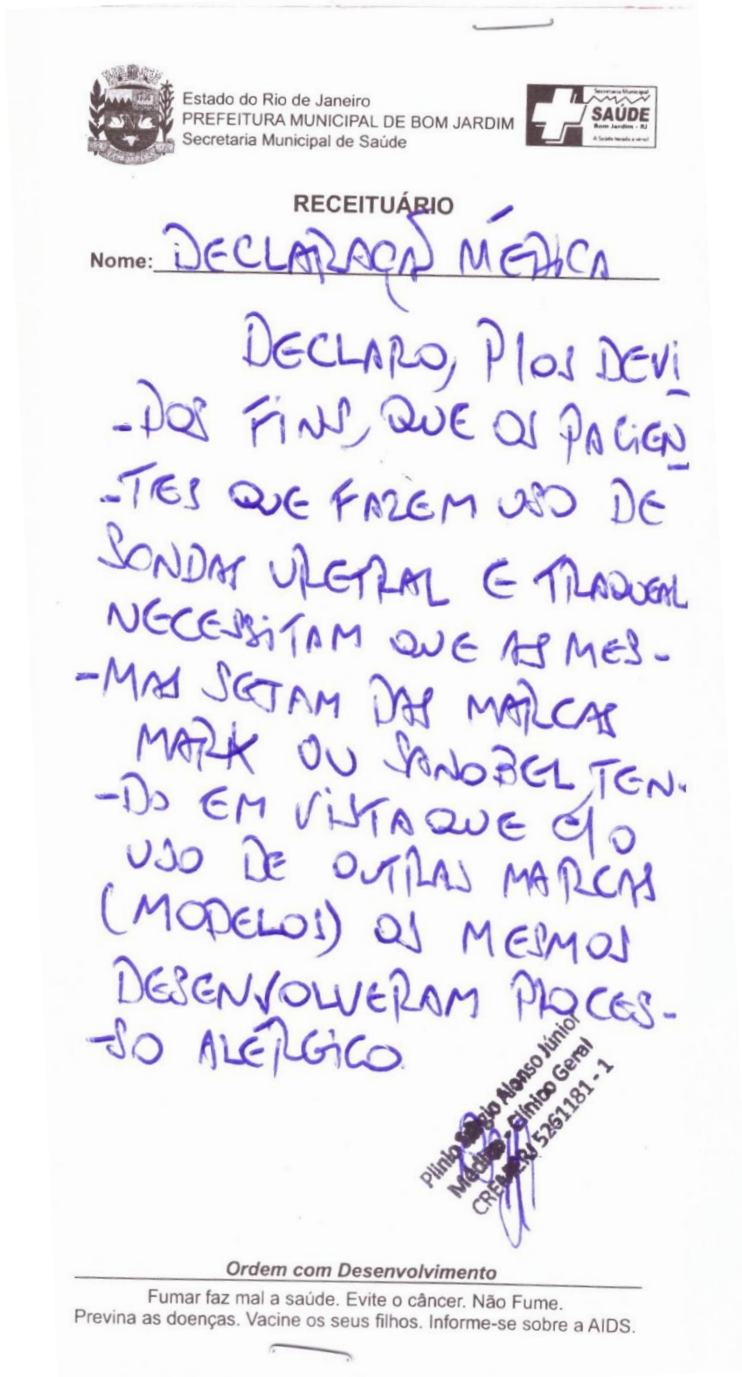 Estado do Rio de Janeiro
PREFEITURA MUNICIPAL DE BOM JARDIM
Secretaria Municipal de Saúde
Secretaria Municipal
SAÚDE
Bom Jardim - RJ
RECEITUÁRIO
Nome: DECLARAÇÃ MÉDICA
DECLARO, P/OS DEVI
-DOS FINS, QUE OS PACIEN
-TES QUE FAZEM USO DE
SONDAS URETRAL E TRAQUEAL
NECESSITAM QUE AS MES-
-MAS SEJAM DAS MARCAS
MARK OU SANOBEL, TEN-
-DO EM VISTA QUE C/O
USO DE OUTRAS MARCAS
(MODELOS) OS MESMOS
DESENVOLVERAM PROCES-
-SO ALÉRGICO.
Plinio Sérgio Alonso Júnior
Médico - Clínico Geral
CREMERJ 5261181 - 1
Ordem com Desenvolvimento
Fumar faz mal a saúde. Evite o câncer. Não Fume.
Previna as doenças. Vacine os seus filhos. Informe-se sobre a AIDS.